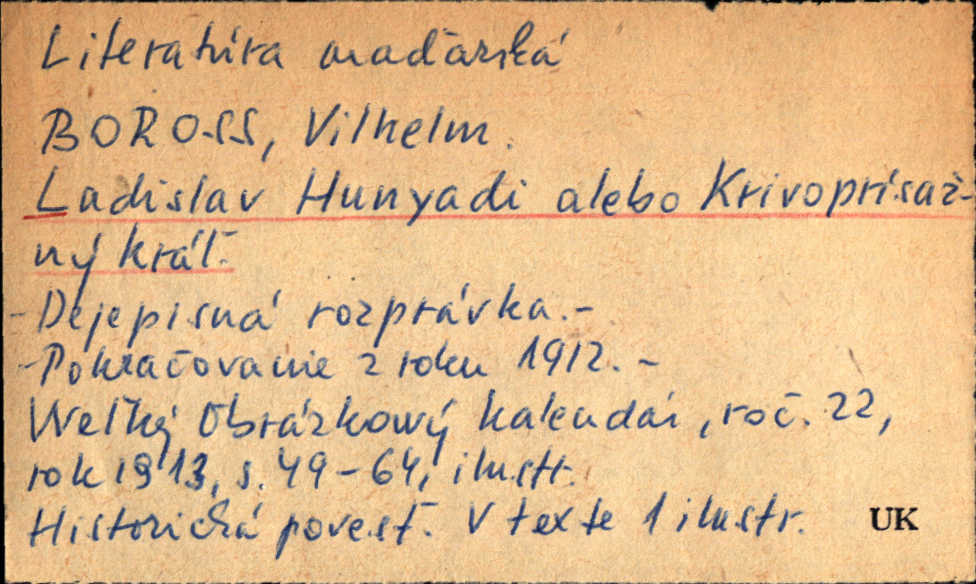 Literatúra maďarská
BOROSS, Vilhelm.
Ladislav Hunyadi alebo Krivoprísaž-
ný kráľ.
-Dejepisná rozprávka.-
-Pokračovanie z roku 1912.-
Weľký Obrázkowý kalendár, roč. 22,
rok 1913, s. 49-64, ilustr.
Historická povesť. V texte 1 ilustr. UK